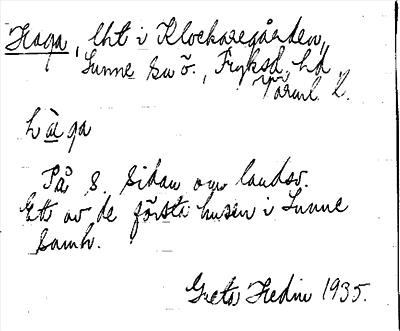 Haga, lht i Klockaregården,
Sunne sn ö., Fryksd. hd
Värml. l.
hàga
På S. sidan om landsv.
Ett av de första husen i Sunne
samh.
Greta Hedin 1935.